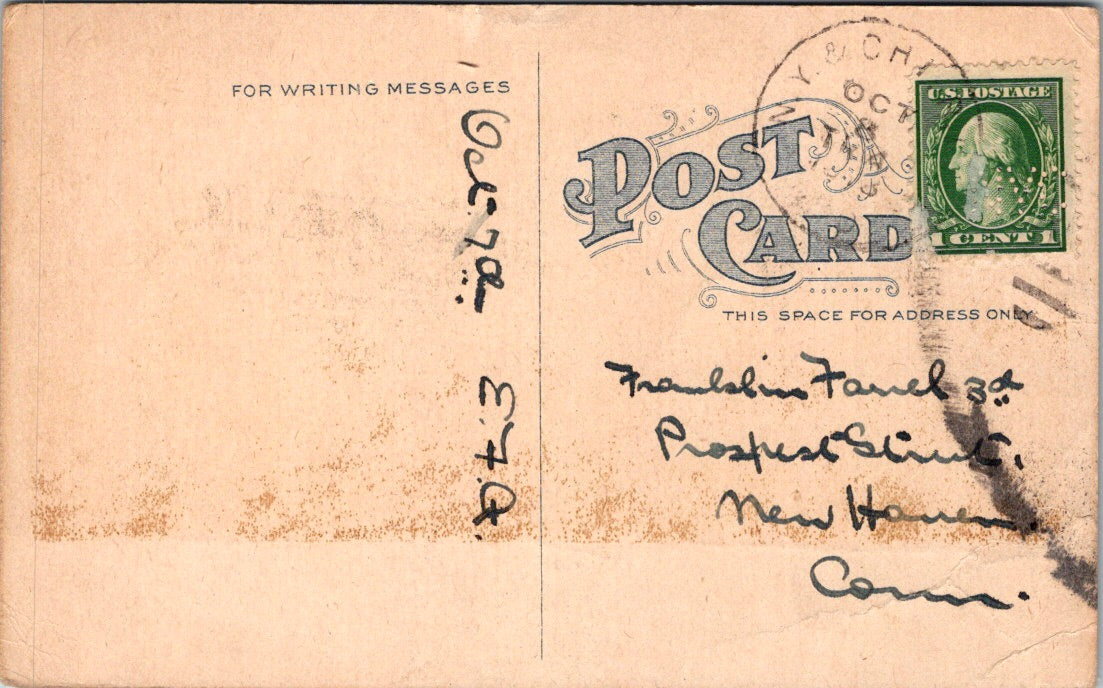 FOR WRITING MESSAGES
Oct. 7th
E.F.
POST
CARD
THIS SPACE FOR ADDRESS ONLY
N.Y. & CHI
OCT
U.S. POSTAGE
1 CENT 1
Franklin Farrel 3rd
Prospect Street.
New Haven.
Conn.